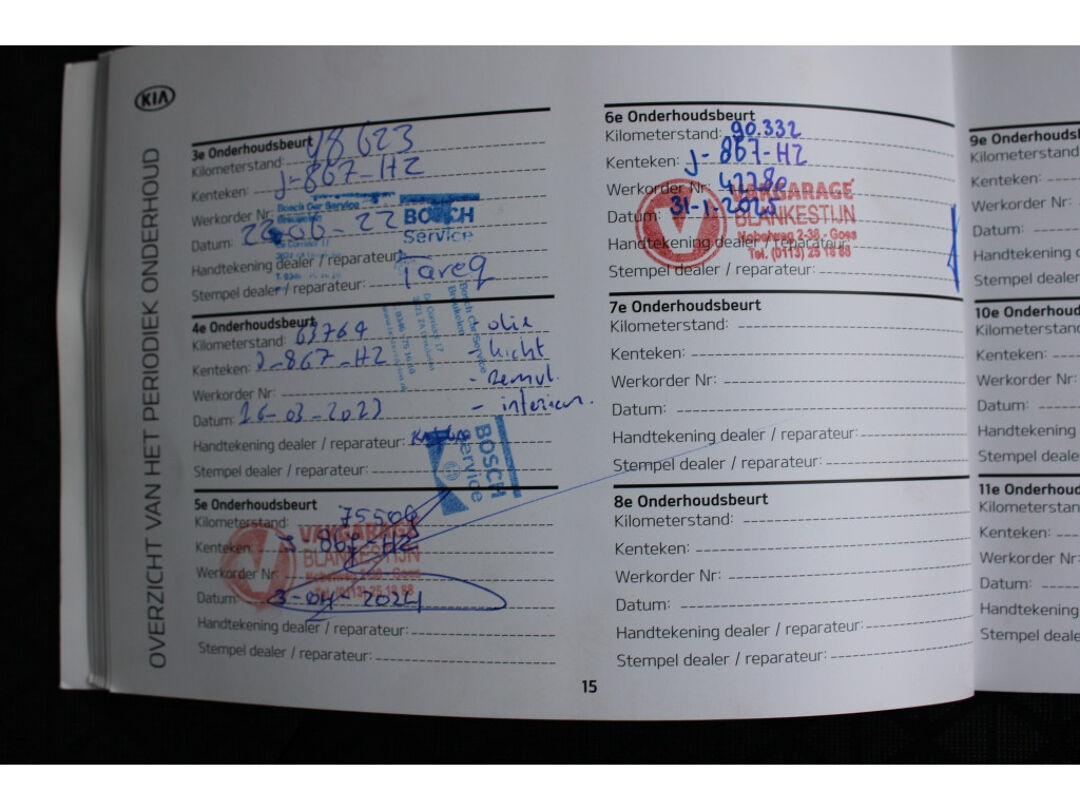 KIA
OVERZICHT VAN HET PERIODIEK ONDERHOUD
3e Onderhoudsbeurt
Kilometerstand: 48623
Kenteken: J-867-HZ
Werkorder Nr:
Datum: 22-06-22
Handtekening dealer / reparateur:
Tareq
Stempel dealer / reparateur:
Bosch Car Service
BOSCH
Service
4e Onderhoudsbeurt
Kilometerstand: 63764
Kenteken: J-867-HZ
Werkorder Nr:
Datum: 16-03-2023
Handtekening dealer / reparateur:
Stempel dealer / reparateur:
- olie
- lucht
- remvl.
- interieur.
Bosch Car Service
BOSCH
Service
5e Onderhoudsbeurt
Kilometerstand: 75506
Kenteken: J-867-HZ
Werkorder Nr:
Datum: 3-04-2024
Handtekening dealer / reparateur:
Stempel dealer / reparateur:
VAKGARAGE
BLANKESTIJN
Nobelweg 2-38 - Goes
Tel. (0113) 25 18 88
15
6e Onderhoudsbeurt
Kilometerstand: 90.332
Kenteken: J-867-HZ
Werkorder Nr: 42280
Datum: 31-1-2025
Handtekening dealer / reparateur:
Stempel dealer / reparateur:
VAKGARAGE
BLANKESTIJN
Nobelweg 2-38 - Goes
Tel. (0113) 25 18 88
7e Onderhoudsbeurt
Kilometerstand:
Kenteken:
Werkorder Nr:
Datum:
Handtekening dealer / reparateur:
Stempel dealer / reparateur:
8e Onderhoudsbeurt
Kilometerstand:
Kenteken:
Werkorder Nr:
Datum:
Handtekening dealer / reparateur:
Stempel dealer / reparateur:
9e Onderhoudsb
Kilometerstand
Kenteken:
Werkorder Nr:
Datum:
Handtekening d
Stempel dealer
10e Onderhoud
Kilometerstand
Kenteken:
Werkorder Nr:
Datum:
Handtekening
Stempel deale
11e Onderhoud
Kilometerstan
Kenteken:
Werkorder Nr:
Datum:
Handtekening
Stempel deale